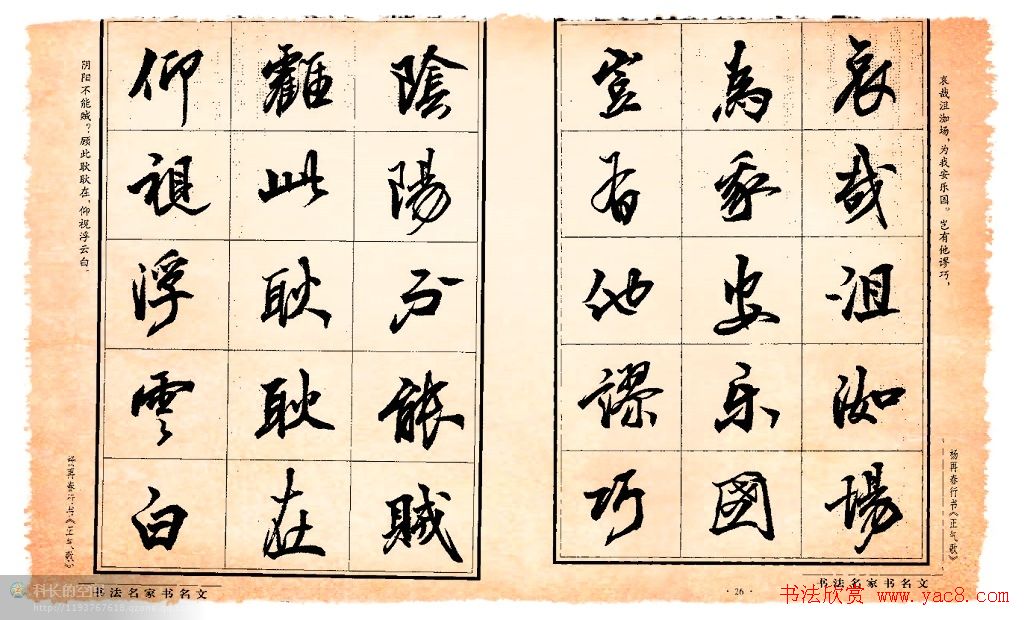 哀哉沮洳場
為我安乐國
豈有他謬巧
哀哉沮洳场，为我安乐国。岂有他谬巧，
杨再春行书《正气歌》
书法名家书名文
· 26 ·
陰陽不能賊
顧此耿耿在
仰視浮雲白
阴阳不能贼？顾此耿耿在，仰视浮云白。
杨再春行书《正气歌》
书法名家书名文
科长的空
http://1193767618.qzone.q
书法欣赏 www.yac8.com